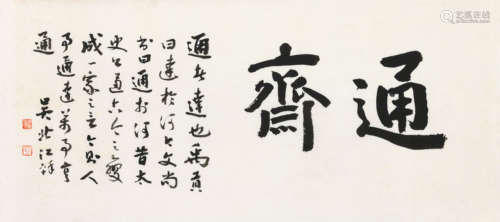 通齋
通者達也禹貢
曰達於河今文尚
書曰通於河昔太
史公通古今之變
成一家之言今則人
事通達萬事亨
通
吳北江